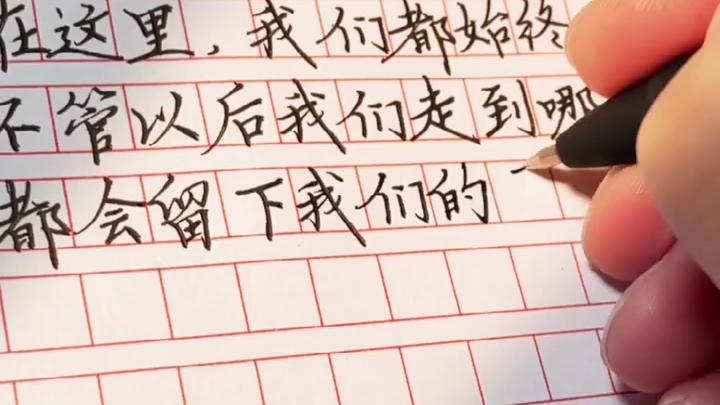 在这里，我们都始终
不管以后我们走到哪
都会留下我们的